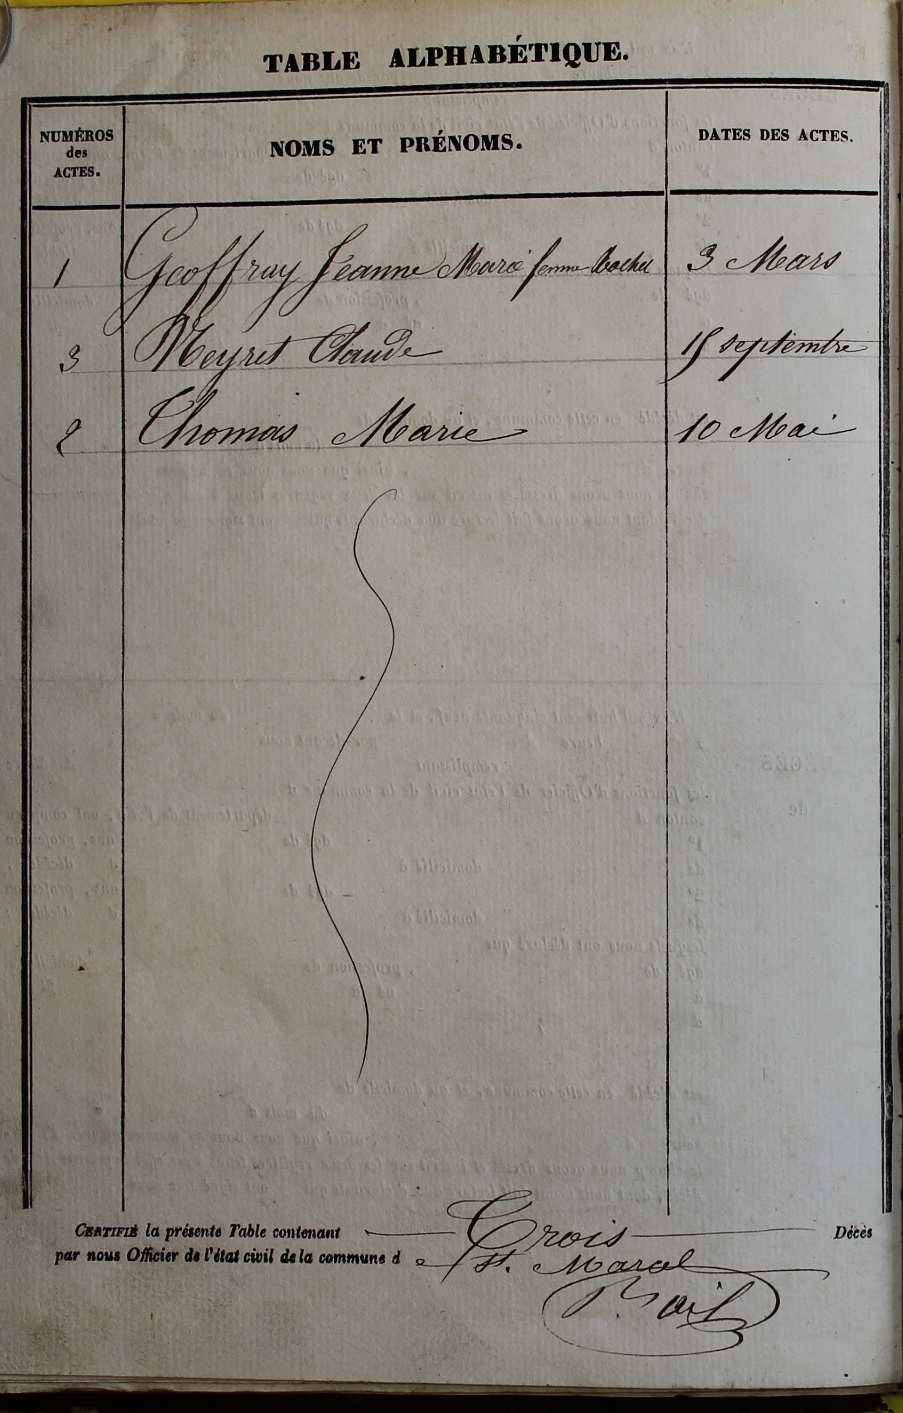 TABLE ALPHABÉTIQUE.
NUMÉROS des ACTES. NOMS ET PRÉNOMS. DATES DES ACTES.
1 Geoffray Jeanne Marie femme Rochet 3 Mars
3 Meyret Claude 15 septembre
2 Thomas Marie 10 Mai
CERTIFIÉ la présente Table contenant Trois Décès
par nous Officier de l'état civil de la commune d e St. Marcel